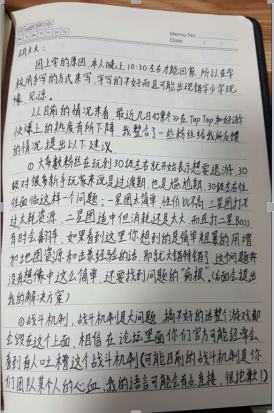 Memo No.
Date
因上学的原因,本人晚上10:30左右才能回家,所以在学
校用手写的方式来写,字写的不好而且可能出现错字少字现
像,见谅。
以目前的情况来看,最近几日《》在TapTap和好游
快爆上的热度有所下降,我整合了一些粉丝给我所反馈
的情况提出以下建议
①大多数粉丝在玩到30级左右就开始表示想要退游,30
级对很多新手玩家来说是过渡期,也是尴尬期,30级左右性
性面临这样一个问题:一星图太简单,性价比不高,三星图打不
过太耗资源,二星图适中但消耗还是太大,而且打二星Boss
有时会翻车,如果看到这里你想到的是简单粗暴的用增
加地图资源和击杀经验的话,那就大错特错了,这个问题并
没有想像中这么简单,还要找到问题的“病根”。(后面会提出
我的解决方案)
②战斗机制,战斗机制是大问题,搞不好的话整个游戏都
会毁在这个上面,相信在论坛里面你们官方可能经常会
看到有人吐槽这个战斗机制(可能目前的战斗机制是你
们团队某个人的心血,我的语言可能会有点直接,很抱歉!)